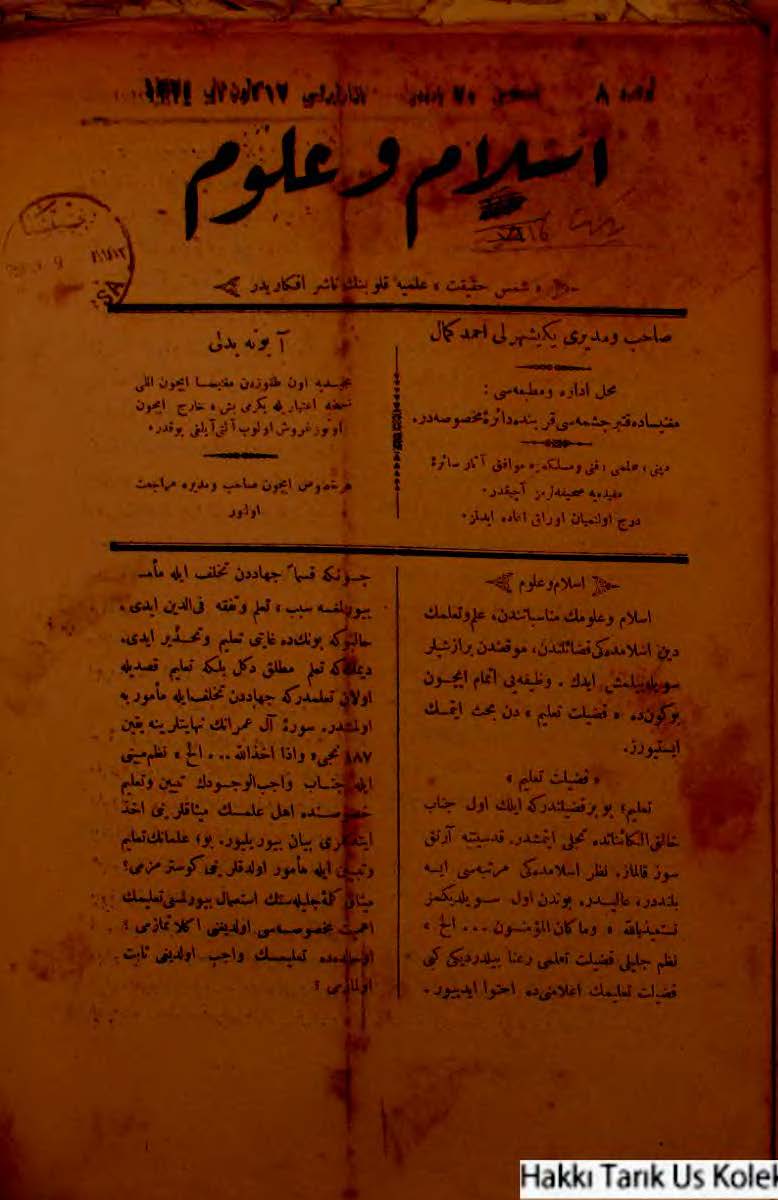 اسلام و علوم
« شمس حقیقت » علمیه قلوبنك ناشر افكاریدر
صاحب ومدیری یكیشهرلی احمد كمال
محل اداره ومطبعه‌سی :
مغنیساده قنبر چشمه‌سی قربنده دائرۀ مخصوصه‌در.
دینی، علمی، فنی ومسلكمزه موافق آثار سائرۀ
مفیده‌یه صحیفه‌لرمز آچیقدر.
درج اولنمیان اوراق اعاده ایدلمز.
آبونه بدلی
نسخه اعتباریله یكرمی بش، خارج ایچون
اوتوز غروش اولوب آلتی آیلغی یوقدر.
هر خصوص ایچون صاحب ومدیره مراجعت
اولنور
اسلام وعلوم
اسلام وعلومك مناسباتندن، علم وتعلمك
دین اسلامده‌كی فضائلندن، موقعندن برازشیلر
سویله‌یبیلمش ایدك. وظیفه‌یی اتمام ایچون
بوكون‌ده « فضیلت تعلیم » دن بحث ایتمك
ایستیورز.
« فضیلت تعلیم »
تعلیم؛ بو بر فضیلتدركه ایلك اول جناب
خالق الكائناتده تجلی ایتمشدر. قدسیتنه آرتق
سوز قالماز. نظر اسلامده‌كی مرتبه‌سی ایسه
بلنددر، عالیدر. بوندن اول سویلدیكمز
« وماكان المؤمنون ... الخ »
نظم جلیلی فضیلت تعلمی رعنا بیلدردیكی كبی
فضیلت تعلیمك اعلامنی‌ده احتوا ایدییور.
چونكه قسماً جهاددن تخلف ایله مأمـ
بیوریلمسنه سبب « تعلم وتفقه فی‌الدین ایدی.
حالبوكه بونك‌ده غایتی تعلیم وتحذیر ایدی.
دیمك‌كه تعلم مطلق دكل بلكه تعلیم قصدیله
اولان تعلمدركه جهاددن تخلف ایله مأمور به
اولمشدر. سورۀ آل عمرانك نهایتلرینه یقین
۱۸۷ نجی « واذا اخذالله ... الخ » نظم مبینی
ایله جناب واجب‌الوجودك تبیین وتعلیم
خصوصنده اهل علمك میثاقلرینی اخذ
ایتدكلری بیان بیوریلیور. بو؛ علمانك تعلیم
وتبیین ایله مأمور اولدقلرینی كوسترمزمی؟
میثاق كلمۀ جلیله‌سنك استعمال بیورلمسی تعلیمك
اهمیت مخصوصه‌سی اولدیغنی اكلاتمازمی ؟
تعلیمك واجب اولدیغی ثابت
اولمازمی ؟
Hakkı Tarık Us Kolek